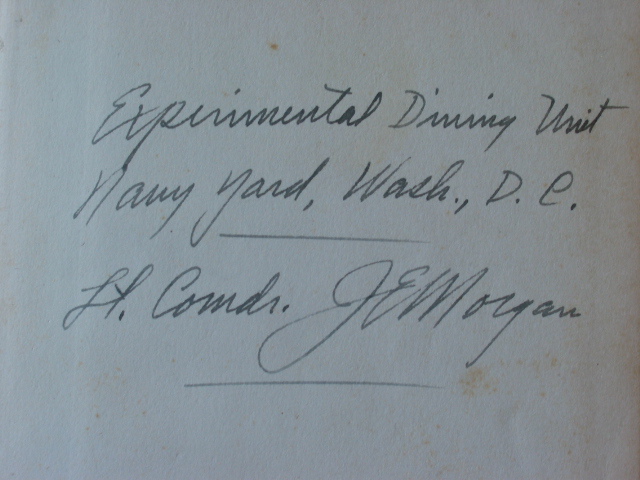 Experimental Diving Unit
Navy Yard, Wash., D. C.
Lt. Comdr. JEMorgan